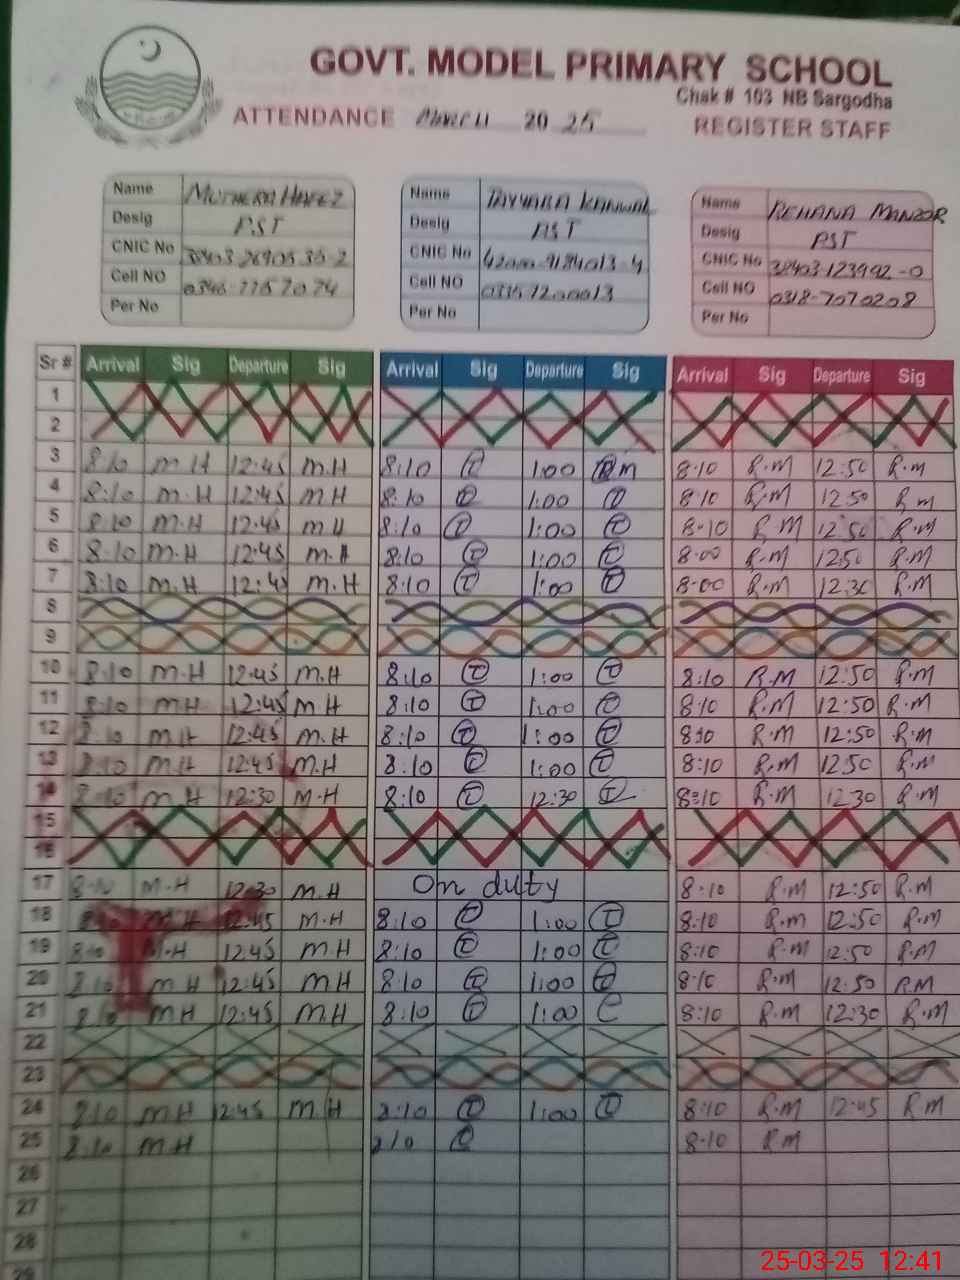 GOVT. MODEL PRIMARY SCHOOL
Chak # 103 NB Sargodha
ATTENDANCE MARCH 2025 REGISTER STAFF
Name Name TAYYABA KANWAL Name REHANA MANZOR
Desig PST Desig PST Desig PST
CNIC No CNIC No CNIC No
Cell NO Cell NO Cell NO 0318-7070208
Per No Per No Per No
Sr # Arrival Sig Departure Sig Arrival Sig Departure Sig Arrival Sig Departure Sig
1
2
3 8:10 M.H 12:45 M.H 8:10 T 1:00 R.M 8:10 R.M 12:50 R.M
4 8:10 M.H 12:45 M.H 8:10 T 1:00 T 8:10 R.M 12:50 R.M
5 8:10 M.H 12:45 M.H 8:10 T 1:00 T 8-10 R.M 12:50 R.M
6 8:10 M.H 12:45 M.H 8:10 T 1:00 T 8:00 R.M 12:50 R.M
7 8:10 M.H 12:45 M.H 8:10 T 1:00 T 8-00 R.M 12:30 R.M
8
9
10 8:10 M.H 12:45 M.H 8:10 T 1:00 T 8:10 R.M 12:50 R.M
11 8:10 M.H 12:45 M.H 8:10 T 1:00 T 8:10 R.M 12:50 R.M
12 8:10 M.H 12:45 M.H 8:10 T 1:00 T 8:10 R.M 12:50 R.M
13 8:10 M.H 12:45 M.H 8:10 T 1:00 T 8:10 R.M 12:50 R.M
14 8:10 M.H 12:30 M.H 8:10 T 12:30 T 8:10 R.M 12:30 R.M
15
16
17 8:10 M.H 12:30 M.H On duty 8:10 R.M 12:50 R.M
18 8:10 M.H 12:45 M.H 8:10 T 1:00 T 8:10 R.M 12:50 R.M
19 8:10 M.H 12:45 M.H 8:10 T 1:00 T 8:10 R.M 12:50 R.M
20 8:10 M.H 12:45 M.H 8:10 T 1:00 T 8:10 R.M 12:50 R.M
21 8:10 M.H 12:45 M.H 8:10 T 1:00 T 8:10 R.M 12:30 R.M
22
23
24 8:10 M.H 12:45 M.H 8:10 T 1:00 T 8:10 R.M 12:45 R.M
25 8:10 M.H 8:10 T 8-10 R.M
26
27
28
29
25-03-25 12:41